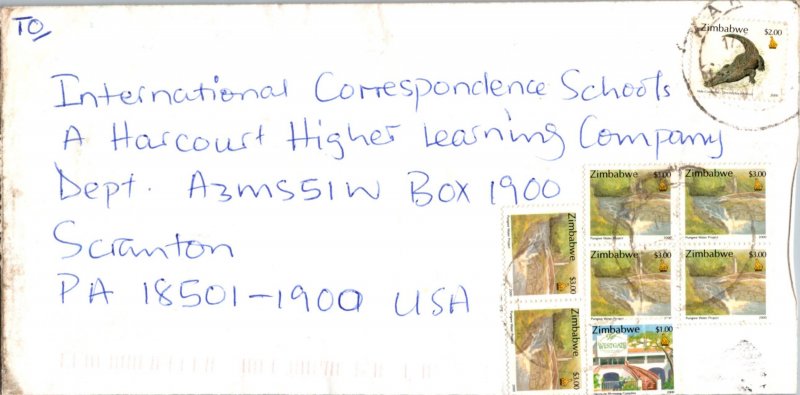 TO
International Correspondence Schools
A Harcourt Higher Learning Company
Dept. A3MS51W BOX 1900
Scranton
PA 18501-1900 USA
Zimbabwe $2.00
Zimbabwe $3.00
Pungwe Water Project 2000
Zimbabwe $3.00
Pungwe Water Project 2000
Zimbabwe $3.00
Pungwe Water Project
Zimbabwe $3.00
Pungwe Water Project 2000
Zimbabwe $3.00
Zimbabwe $3.00
Zimbabwe $1.00
WESTGATE